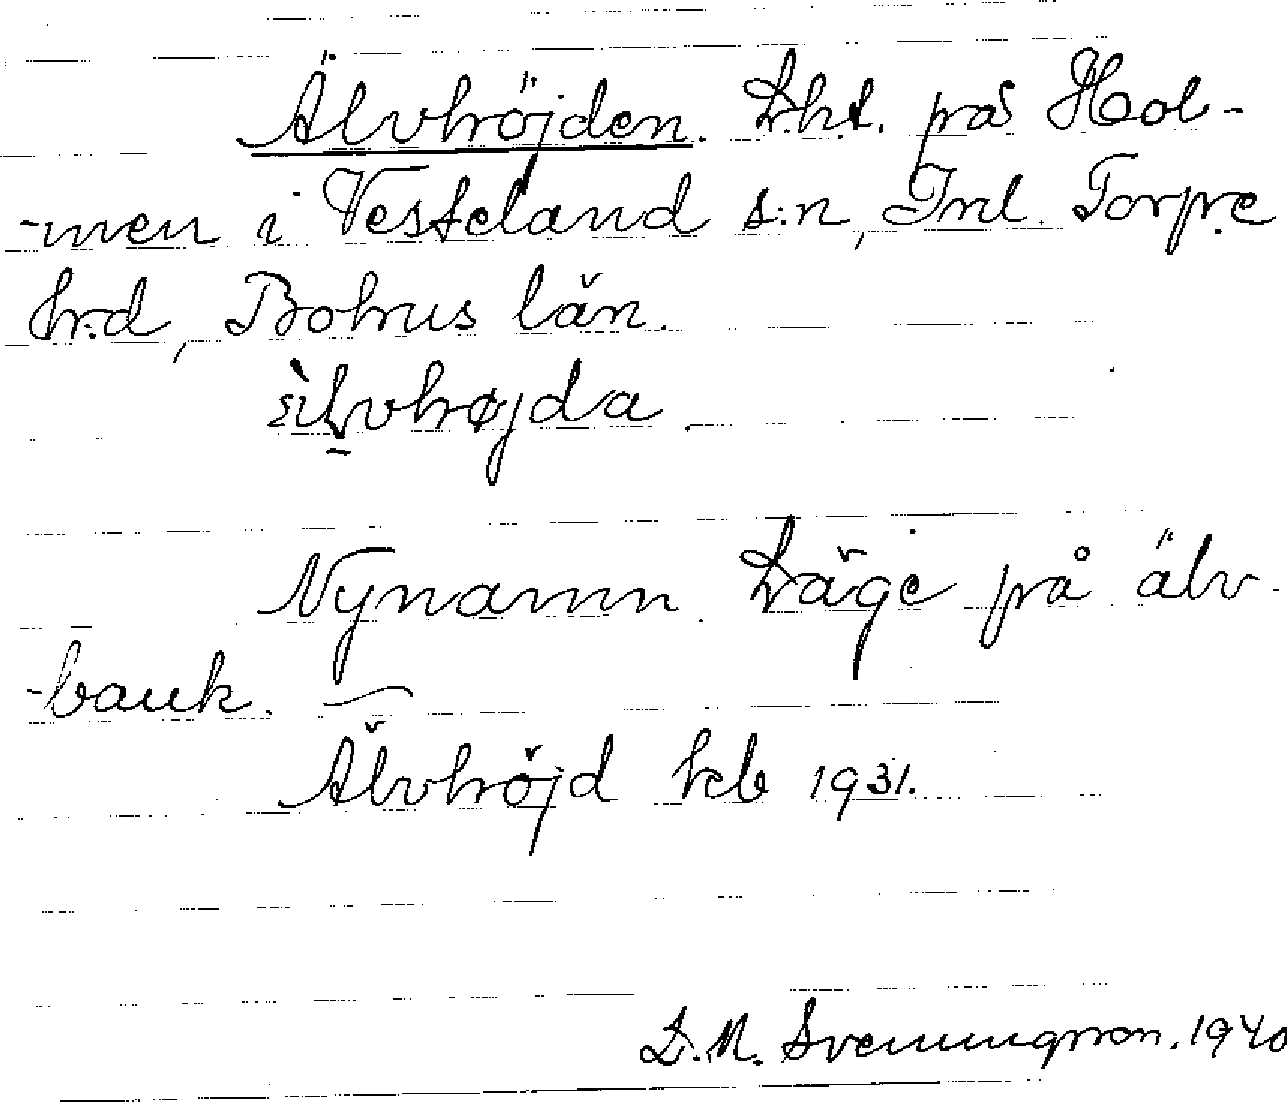 Älvhöjden. Lht. på Hol-
-men i Vesteland s:n, Inl. Torpe
hrd, Bohus län.
Nynamn. Läge på älv-
-bank.
Älvhöjd hcb 1931.
D.M. Svenningsson. 1940